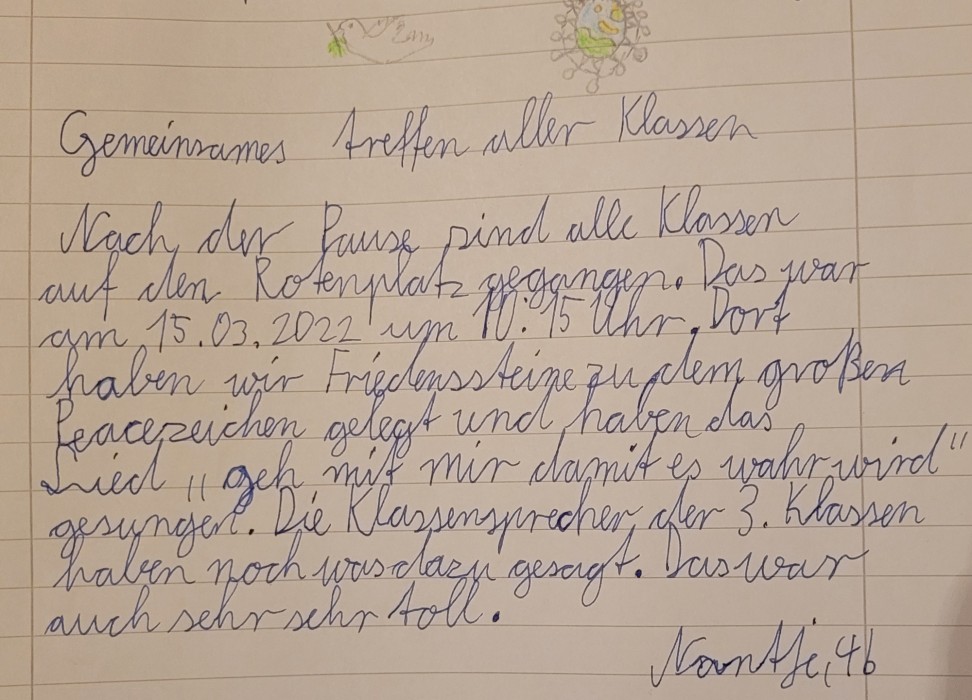 Gemeinsames treffen aller Klassen
Nach der Pause sind alle Klassen
auf den Rotenplatz gegangen. Das war
am 15.03.2022 um 10:15 Uhr. Dort
haben wir Friedenssteine zu dem großen
Peacezeichen gelegt und haben das
Lied „geh mit mir damit es wahr wird“
gesungen. Die Klassensprecher der 3. Klassen
haben noch was dazu gesagt. Das war
auch sehr sehr toll.
Nantje, 4b